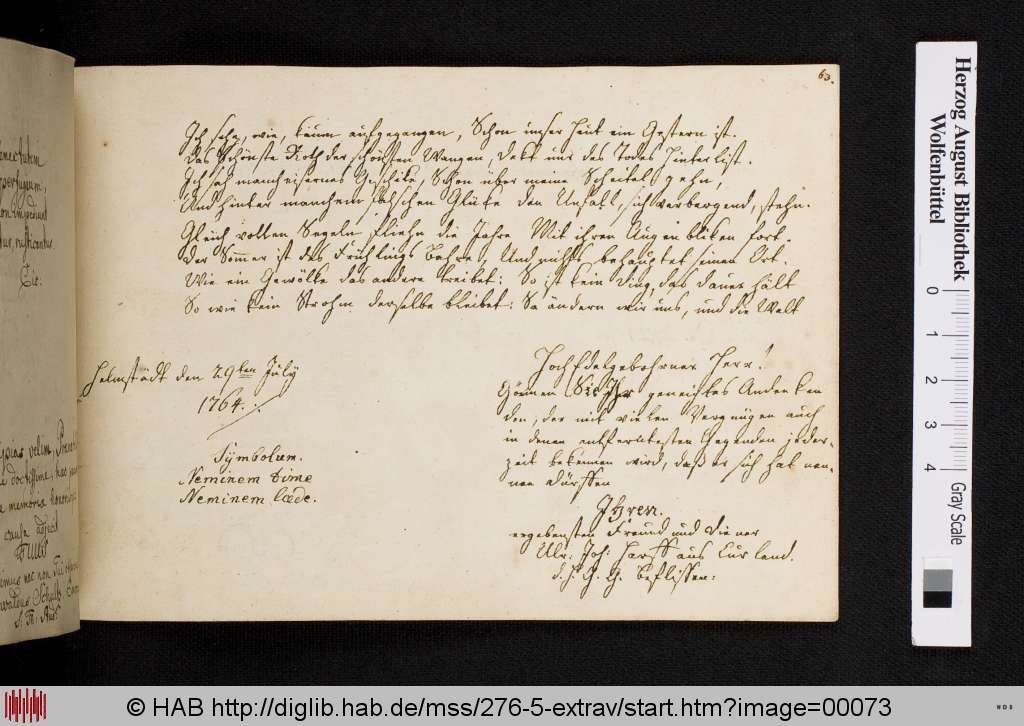 63.
Ich sehe, wie, kaum aufgegangen, Schon unser Heut ein Gestern ist.
Das Schönste Roth der schönsten Wangen, Dekt uns des Todes Hinterlist.
Ich sah manch eisernes Geschike, Schon über meine Scheitel gehn,
Und hinter manchem falschen Glüke Den Unfall, sich verbergend, stehn.
Gleich vollen Segeln fliehn die Jahre Mit ihren Augenbliken fort.
Der Sommer ist des Frühlings Bahre, Und nichts behauptet seinen Ort.
Wie ein Gewölke das andere treibet: So ist kein Ding, das dauer hält
So wie kein Strohm derselbe bleibet: So ändern wir uns, und die Welt
Helmstädt den 29ten July
1764.
Symbolum.
Neminem time
Neminem læde.
HochEdelgebohrner Herr!
Gönnen Sie Ihr geneigtes Andenken
dem, der mit vielen Vergnügen auch
in denen entferntesten Gegenden jeder-
zeit bekennen wird, daß er sich hat nen-
nen dürffen
Ihren.
ergebensten Freund und Diener
Ulr: Joh: aus Curland.
d. G. G. Beflissen:
Cic:
Herzog August Bibliothek
Wolfenbüttel
0 1 2 3 4
Gray Scale
© HAB http://diglib.hab.de/mss/276-5-extrav/start.htm?image=00073
WDB